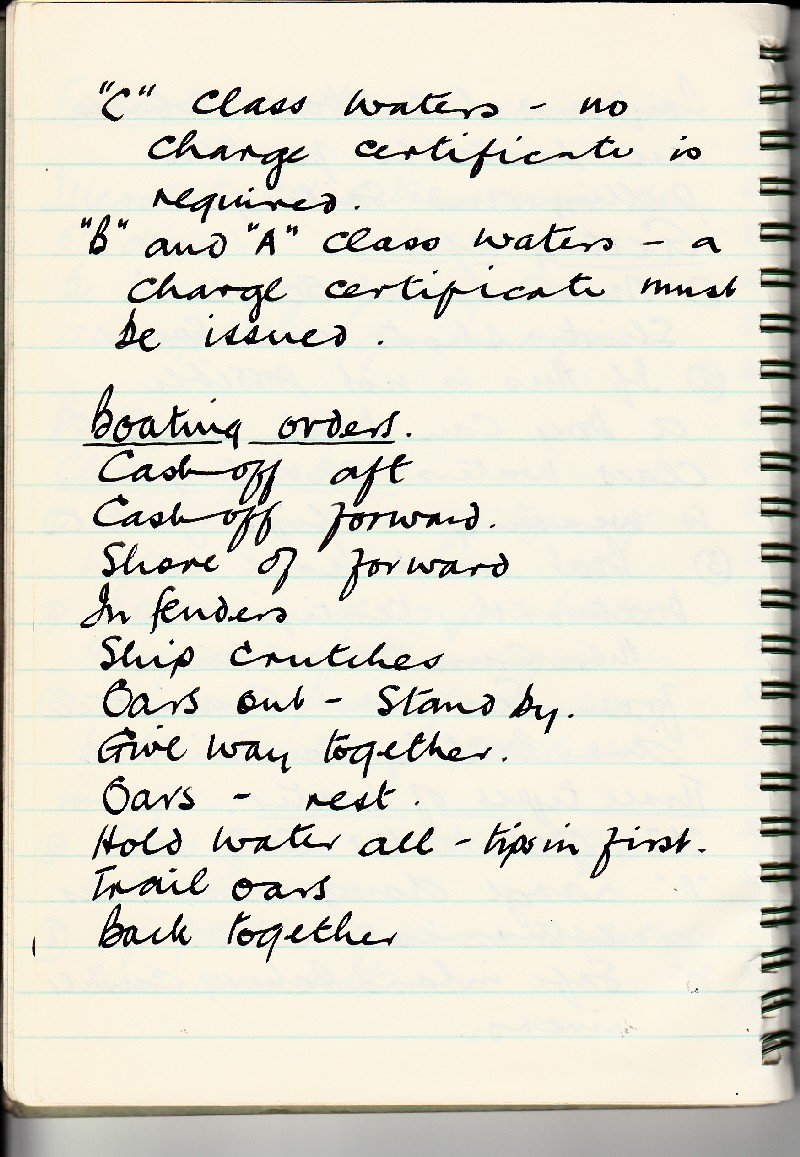 "C" class waters - no
charge certificate is
required.
"B" and "A" class waters - a
charge certificate must
be issued.
Boating orders.
Cast off aft
Cast off forward.
Shore of forward
In fenders
Ship crutches
Oars out - Stand by.
Give way together.
Oars - rest.
Hold water all - tips in first.
Trail oars
Back together